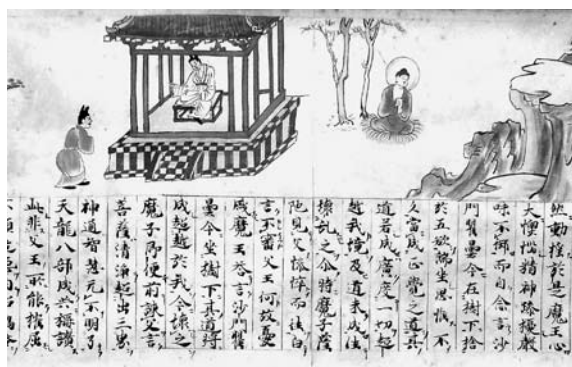 然動搖於是魔王心
大懊惱精神躁擾聲
味不御而自念言沙
門瞿曇今在樹下捨
於五欲端坐思惟不
久當成正覺之道其
道若成廣度一切超
越我境及道未成往
壞乱之尒時魔子薩
陁見父憔悴而往白
言不審父王何故憂
慼魔王荅言沙門瞿
曇今坐樹下其道將
成超越於我今壞之
魔子即便前諫父言
菩薩清淨超出三界
神通智慧无不明了
天龍八部咸共稱讚
此非父王所能摧屈